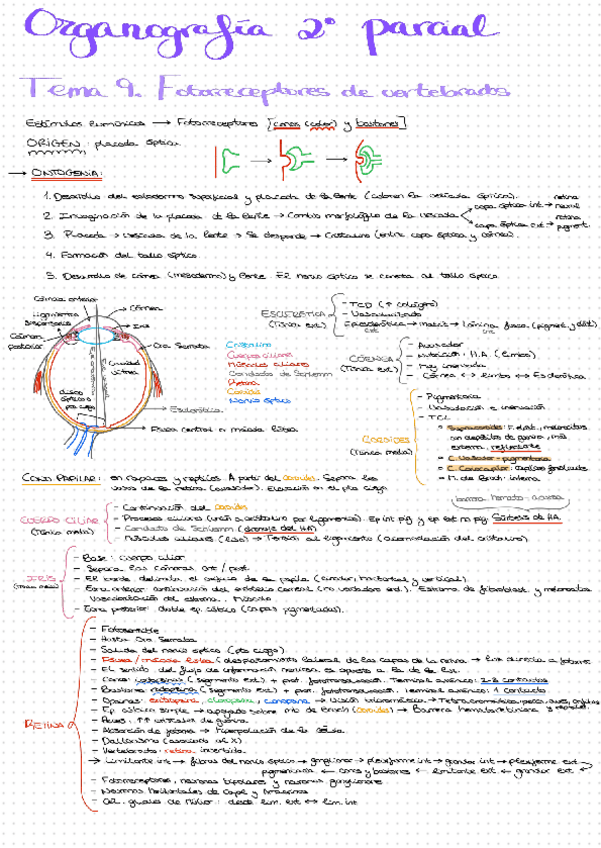 Organografía 2º parcial
Tema 9. Fotorreceptores de vertebrados
Estímulos lumínicos → Fotorreceptores [conos (color) y bastones]
ORIGEN: placoda óptica
→ ONTOGENIA:
1. Desarrollo del ectodermo superficial y placoda de la lente (cubren la vesícula óptica).
2. Invaginación de la placoda de la lente → Cambio morfológico de la vesícula
copa óptica int → retina neural
copa óptica ext → retina pigment.
3. Placoda → vesícula de la lente → Se desprende → Cristalino (entre copa óptica y córnea).
4. Formación del tallo óptico
5. Desarrollo de córnea (mesodermo) y lente. El nervio óptico se conecta al tallo óptico.
Cámara anterior
Ligamentos suspensorios
Cámara posterior
Córnea
Iris
Ora Serrata
Cavidad vítrea
disco óptico o pto ciego
Esclerótica
Fovea central o mácula lútea
Cristalino
Cuerpo ciliar
Músculos ciliares
Conducto de Schlemm
Retina
Coroides
Nervio óptico
ESCLERÓTICA (Túnica ext)
- TCD (↑ colágeno)
- Vascularizada
CÓRNEA (Túnica ext)
- Avascular
- Nutrición: H.A. (limbo)
- Muy inervada
- Córnea ↔ limbo ↔ Esclerótica
COROIDES (Túnica media)
- Pigmentaria
- Vascularización e inervación
- TCL
externa, reflectante
- pigmentaria
o C. Coriocapilar: capilares fenestrados
o M. de Bruch: interna
barrera hemato-acuosa
CONO PAPILAR: en rapaces y reptiles. A partir del coroides. Separa los
vasos de la retina (avascular). Elevación en el pto ciego
CUERPO CILIAR (Túnica media)
- Continuación del coroides
- Procesos ciliares (unión a cristalino por ligamentos). Ep int pig y ep ext no pig. Síntesis de HA
- Conducto de Schlemm (drenaje del HA)
- Músculos ciliares (liso) → Tensión al ligamento (acomodación del cristalino)
IRIS (Túnica media)
- Base: cuerpo ciliar
- Separa las cámaras ant / post.
- El borde delimita el orificio de la pupila (circular, horizontal y vertical).
- Zona anterior: continuación del epitelio corneal (no vascularizado ext). Estroma de fibroblast. y melanocitos
Vascularización del estroma. Músculo
- Zona posterior: doble ep. cúbico (capas pigmentadas).
RETINA
- Fotosensible
- Hasta Ora Serrata
- Salida del nervio óptico (pto ciego)
- Fovea / mácula lútea (desplazamiento lateral de las capas de la retina → luz directa a fotorr.
- El sentido del flujo de información nerviosa es opuesto a la de la luz.
- Conos: iodopsina (segmento ext) + prot. fototransducción. Terminal axónico: 2-3 contactos
- Bastones: rodopsina (segmento ext) + prot. fototransducción. Terminal axónico: 1 contacto
- Opsinas: eritropsina, cloropsina, cianopsina → Visión tricromática → Tetracromática: peces, aves, anfibios y reptiles.
- Ep cúbico simple → apoyado sobre mb de Bruch (coroides) → Barrera hematorretiniana
- Aves: ↑↑ cristales de guanina.
- Absorción de fotones → hiperpolarización de la célula.
- Daltonismo (asociado al X)
- Vertebrados: retina invertida.
→ Limitante int → fibras del nervio óptico → ganglionar → plexiforme int → granular int → plexiforme ext
pigmentaria ← conos y bastones ← limitante ext ← granular ext ←
- Fotorreceptores, neuronas bipolares y neuronas ganglionares.
- Neuronas horizontales de Cajal y Amacrinas
- Cél. gliales de Müller: desde lim. ext ↔ lim. int